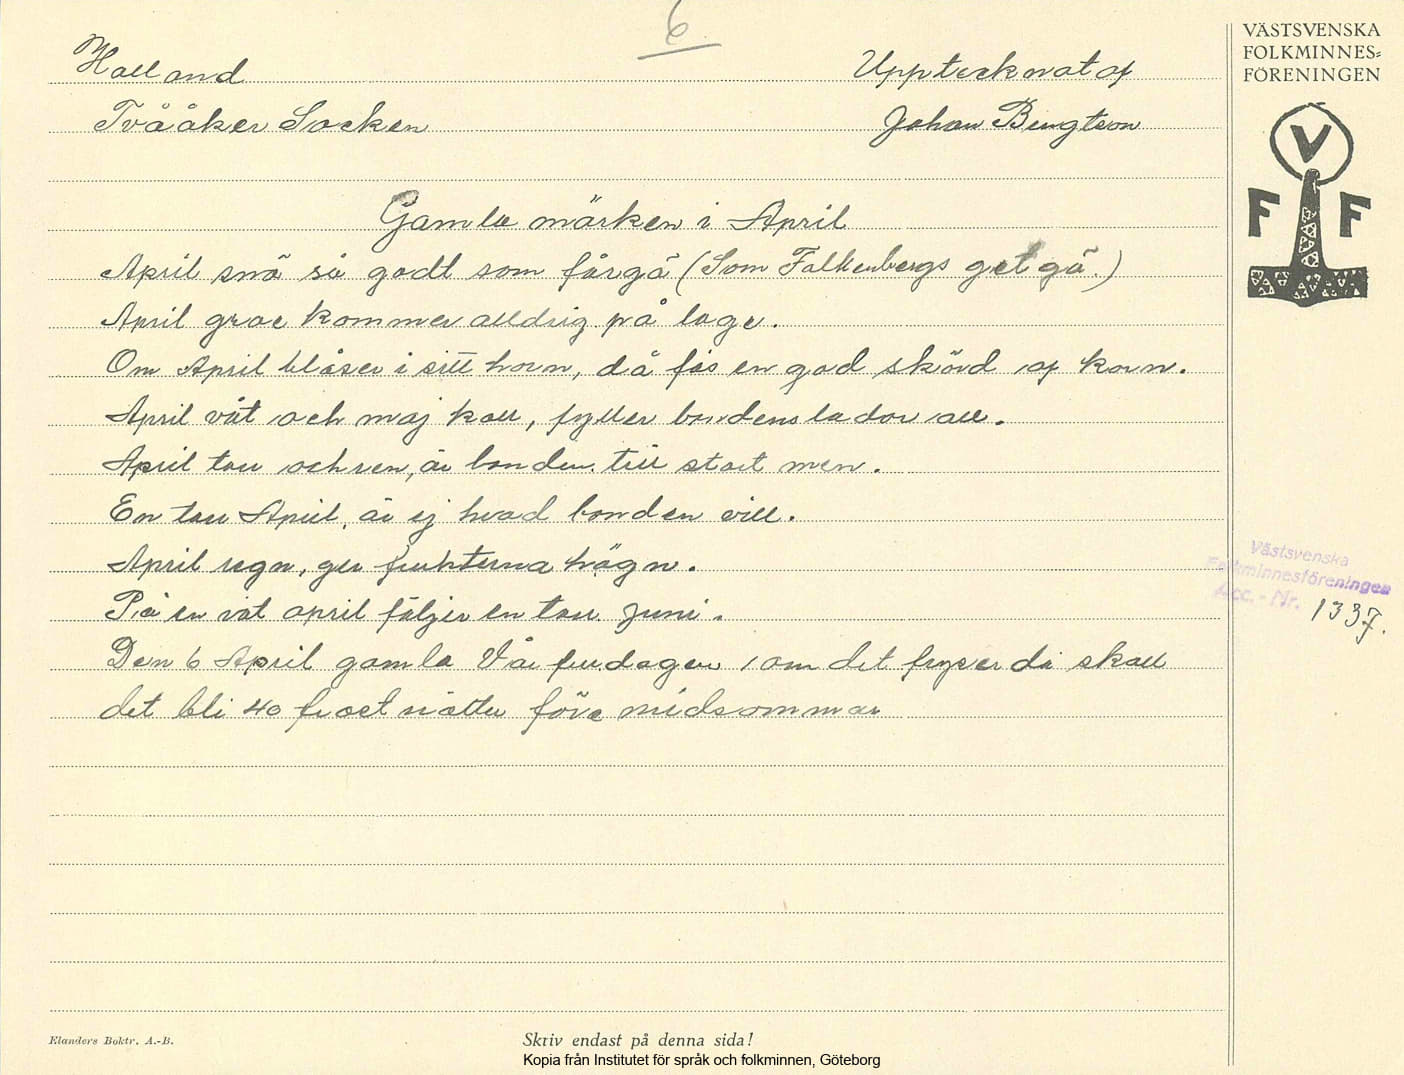 6
VÄSTSVENSKA
FOLKMINNES=
FÖRENINGEN
Halland
Upptecknat af
Tvååker Socken
Johan Bengtson
V
F F
Gamla märken i April
April snö så godt som fårgö (Som Falkenbergs get gö.)
April grae kommer alldrig på lage.
Om April blåser i sitt horn, då fås en god skörd af korn.
April våt och maj kall, fyller bondens lador all.
April torr och ren, är bonden till stort men.
En torr April, är ej hvad bonden vill.
April regn, ger frukterna hägn.
På en våt april följer en torr Juni.
Den 6 April gamla Vårfrudagen, om det fryser då skall
det bli 40 frostnätter före midsommar
Västsvenska
Folkminnesföreningen
Acc. - Nr. 1337.
Elanders Boktr. A.-B.
Skriv endast på denna sida!
Kopia från Institutet för språk och folkminnen, Göteborg